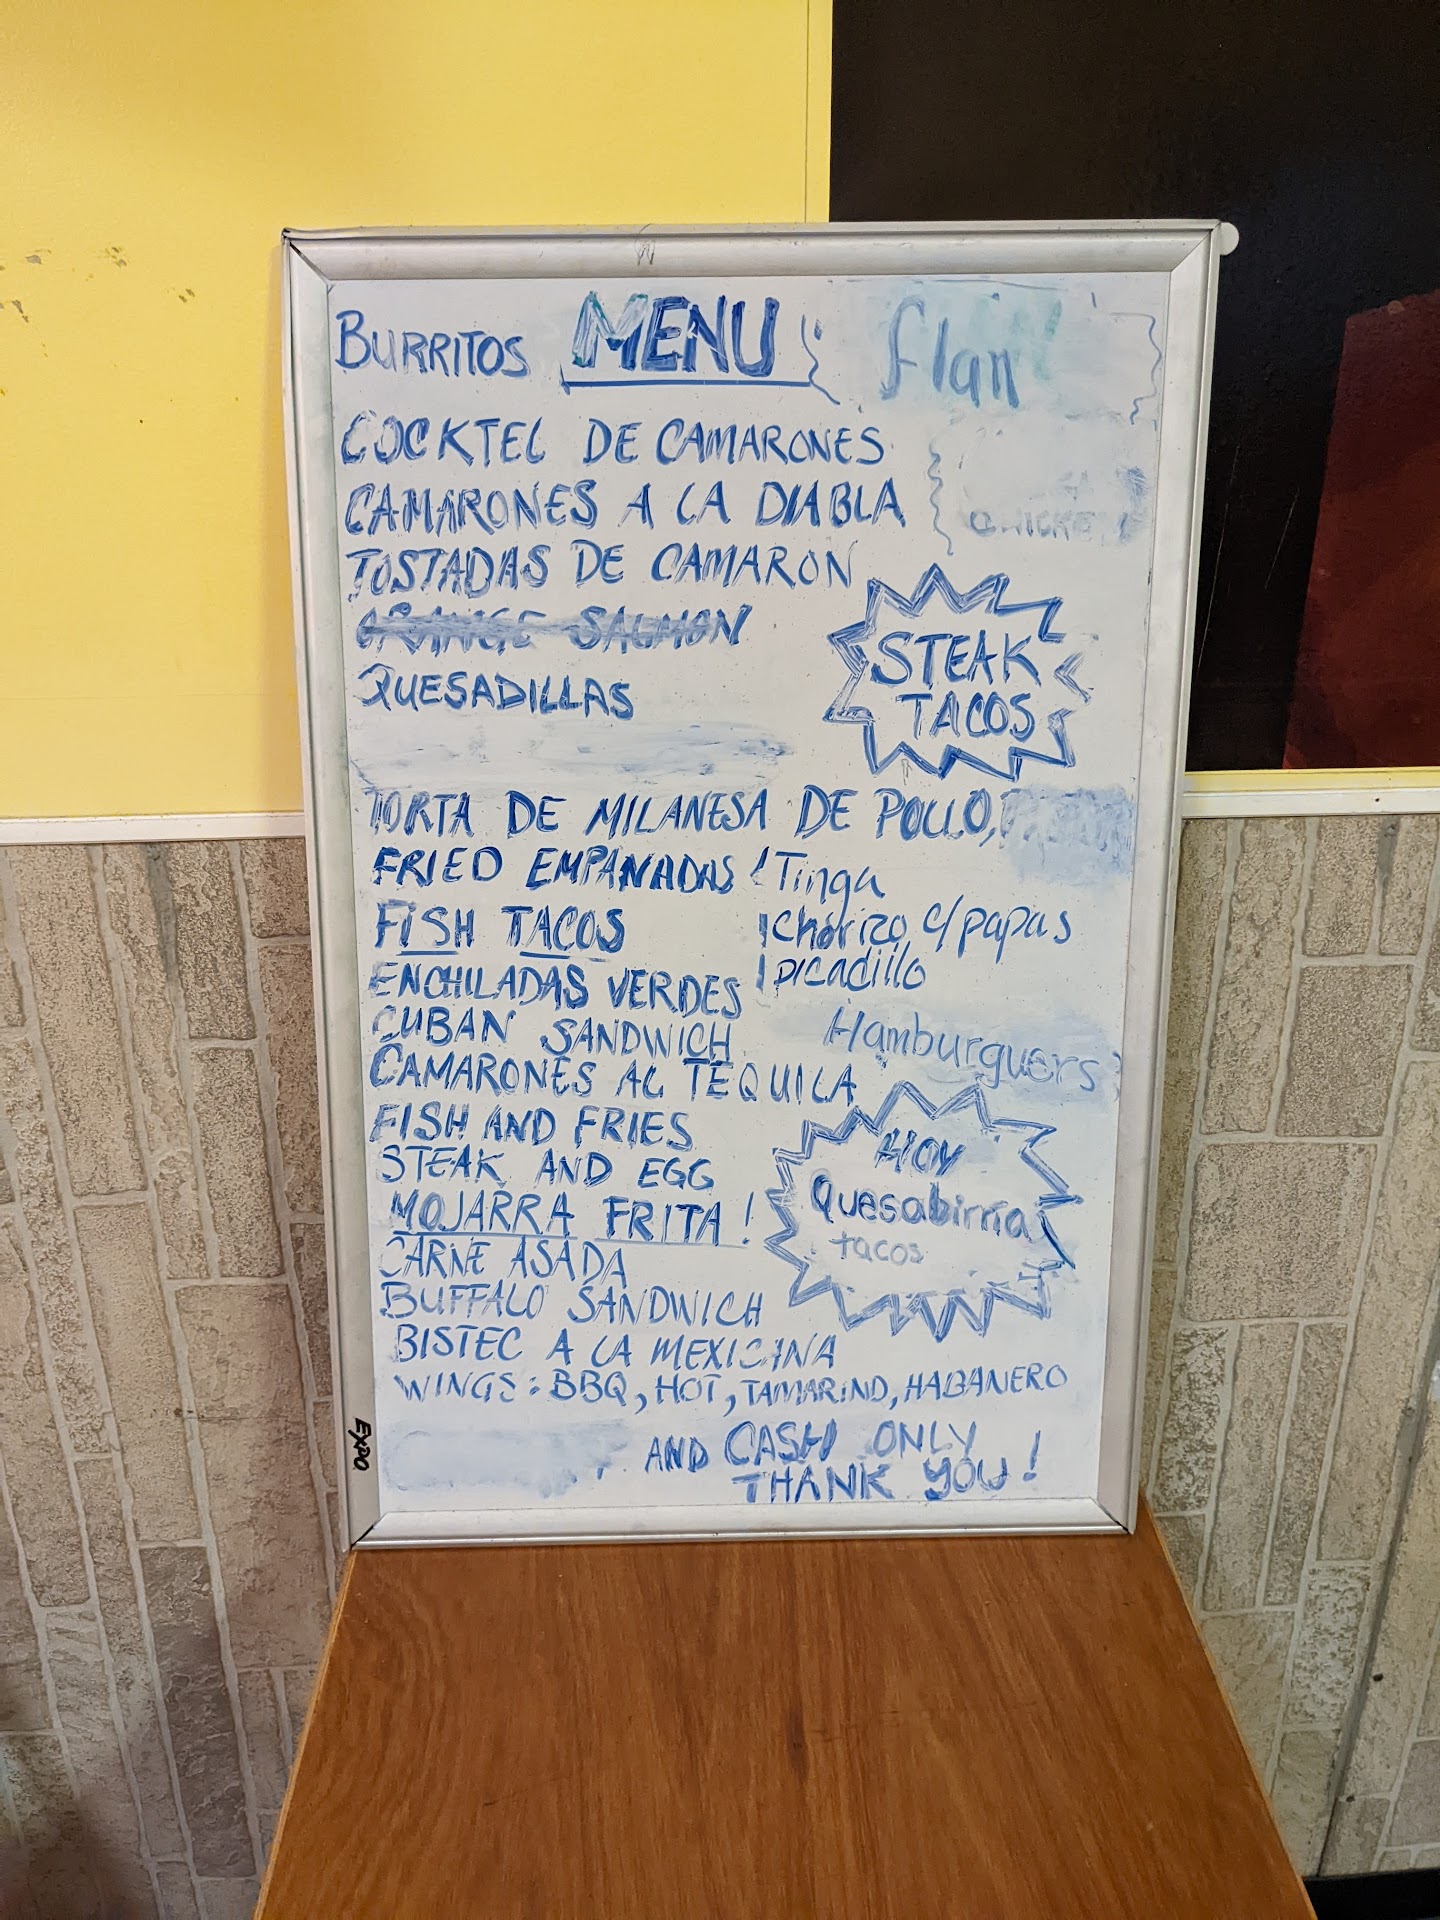 BURRITOS MENU flan
COCKTEL DE CAMARONES
CAMARONES A LA DIABLA
TOSTADAS DE CAMARON
ORANGE SALMON
QUESADILLAS
STEAK
TACOS
TORTA DE MILANESA DE POLLO,
FRIED EMPANADAS ! Tinga
! Chorizo c/papas
! picadillo
FISH TACOS
ENCHILADAS VERDES
CUBAN SANDWICH
Hamburguers
CAMARONES AL TEQUILA
FISH AND FRIES
STEAK AND EGG
MOJARRA FRITA!
HOY
Quesabirria
tacos
CARNE ASADA
BUFFALO SANDWICH
BISTEC A LA MEXICANA
WINGS: BBQ, HOT, TAMARIND, HABANERO
AND CASH ONLY
THANK YOU!
EXPO